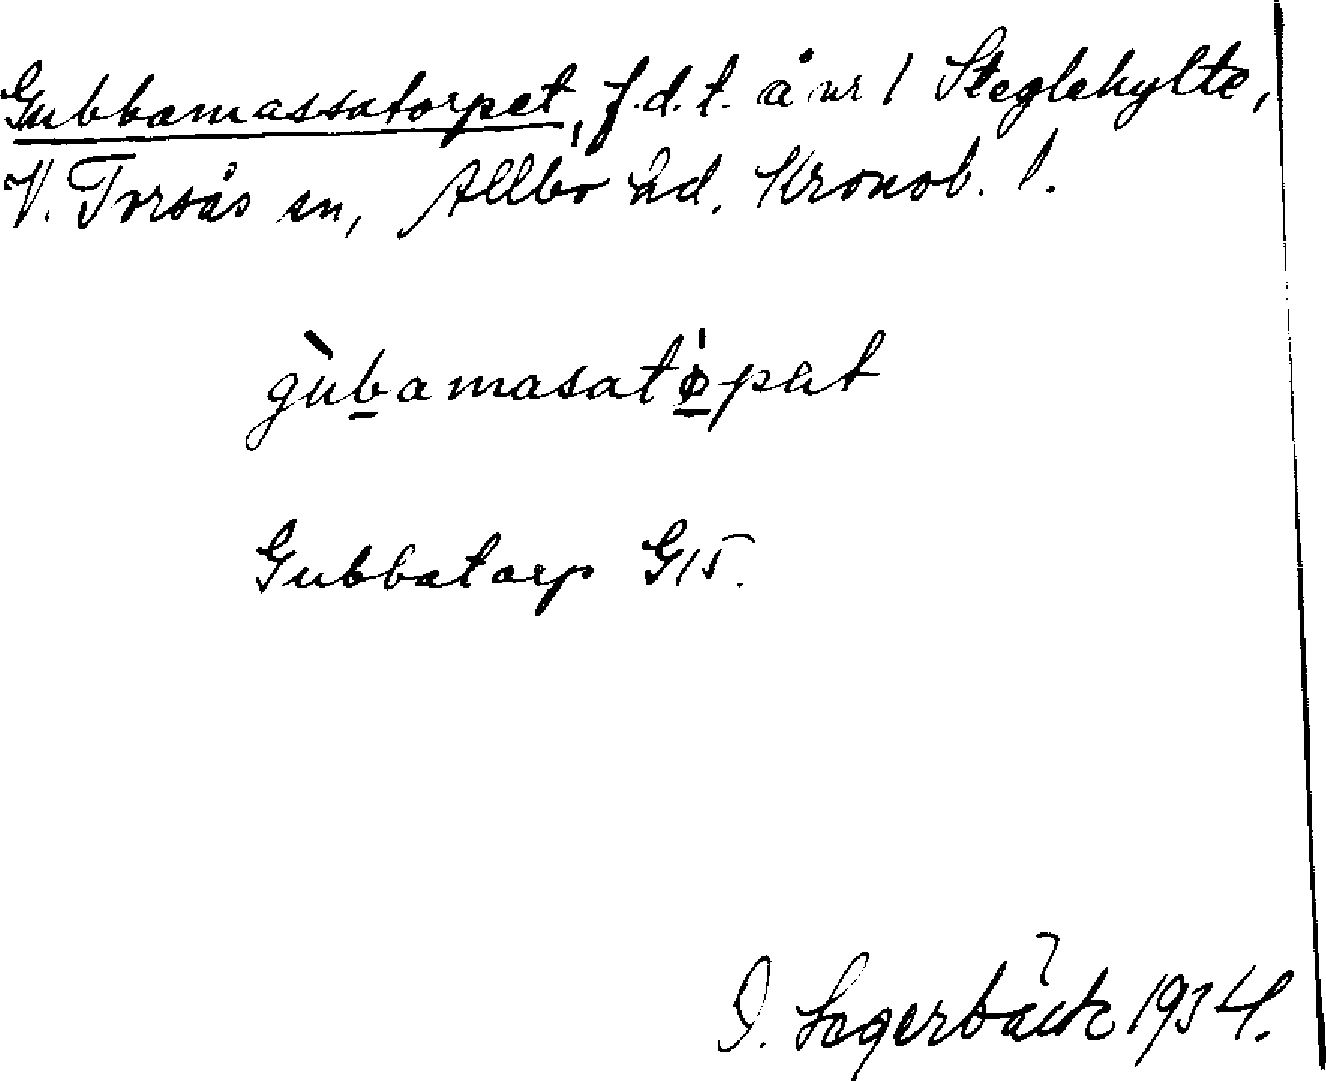 Gubbamassatorpet, f.d.t. å nr 1 Steglehylte,
V. Torsås sn, Allbo hd. Kronob. l.
gùbamasatǿpat
Gubbatorp G15.
I. Segerbäck 1934.